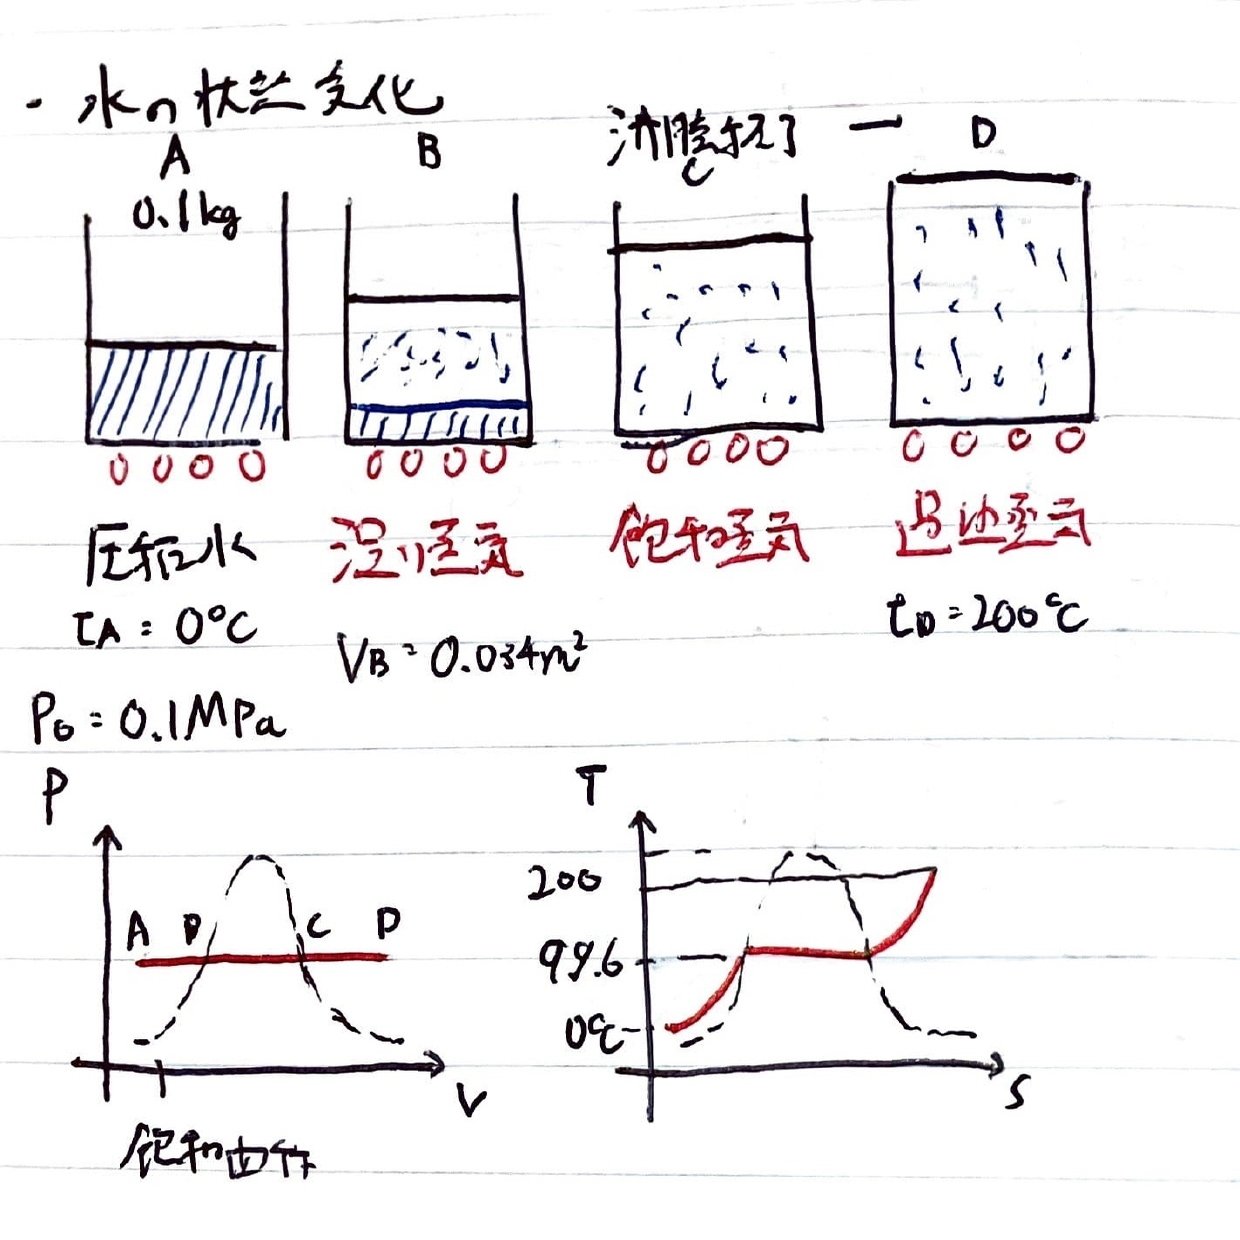 ・水の状態変化
A B 沸騰終了 ー D
C
0.1kg
圧縮水 湿り蒸気 飽和蒸気 過熱蒸気
tA = 0°C VB = 0.034m² tD = 200°C
P0 = 0.1MPa
P T
200
A B C D
99.6
0℃
V S
飽和曲線